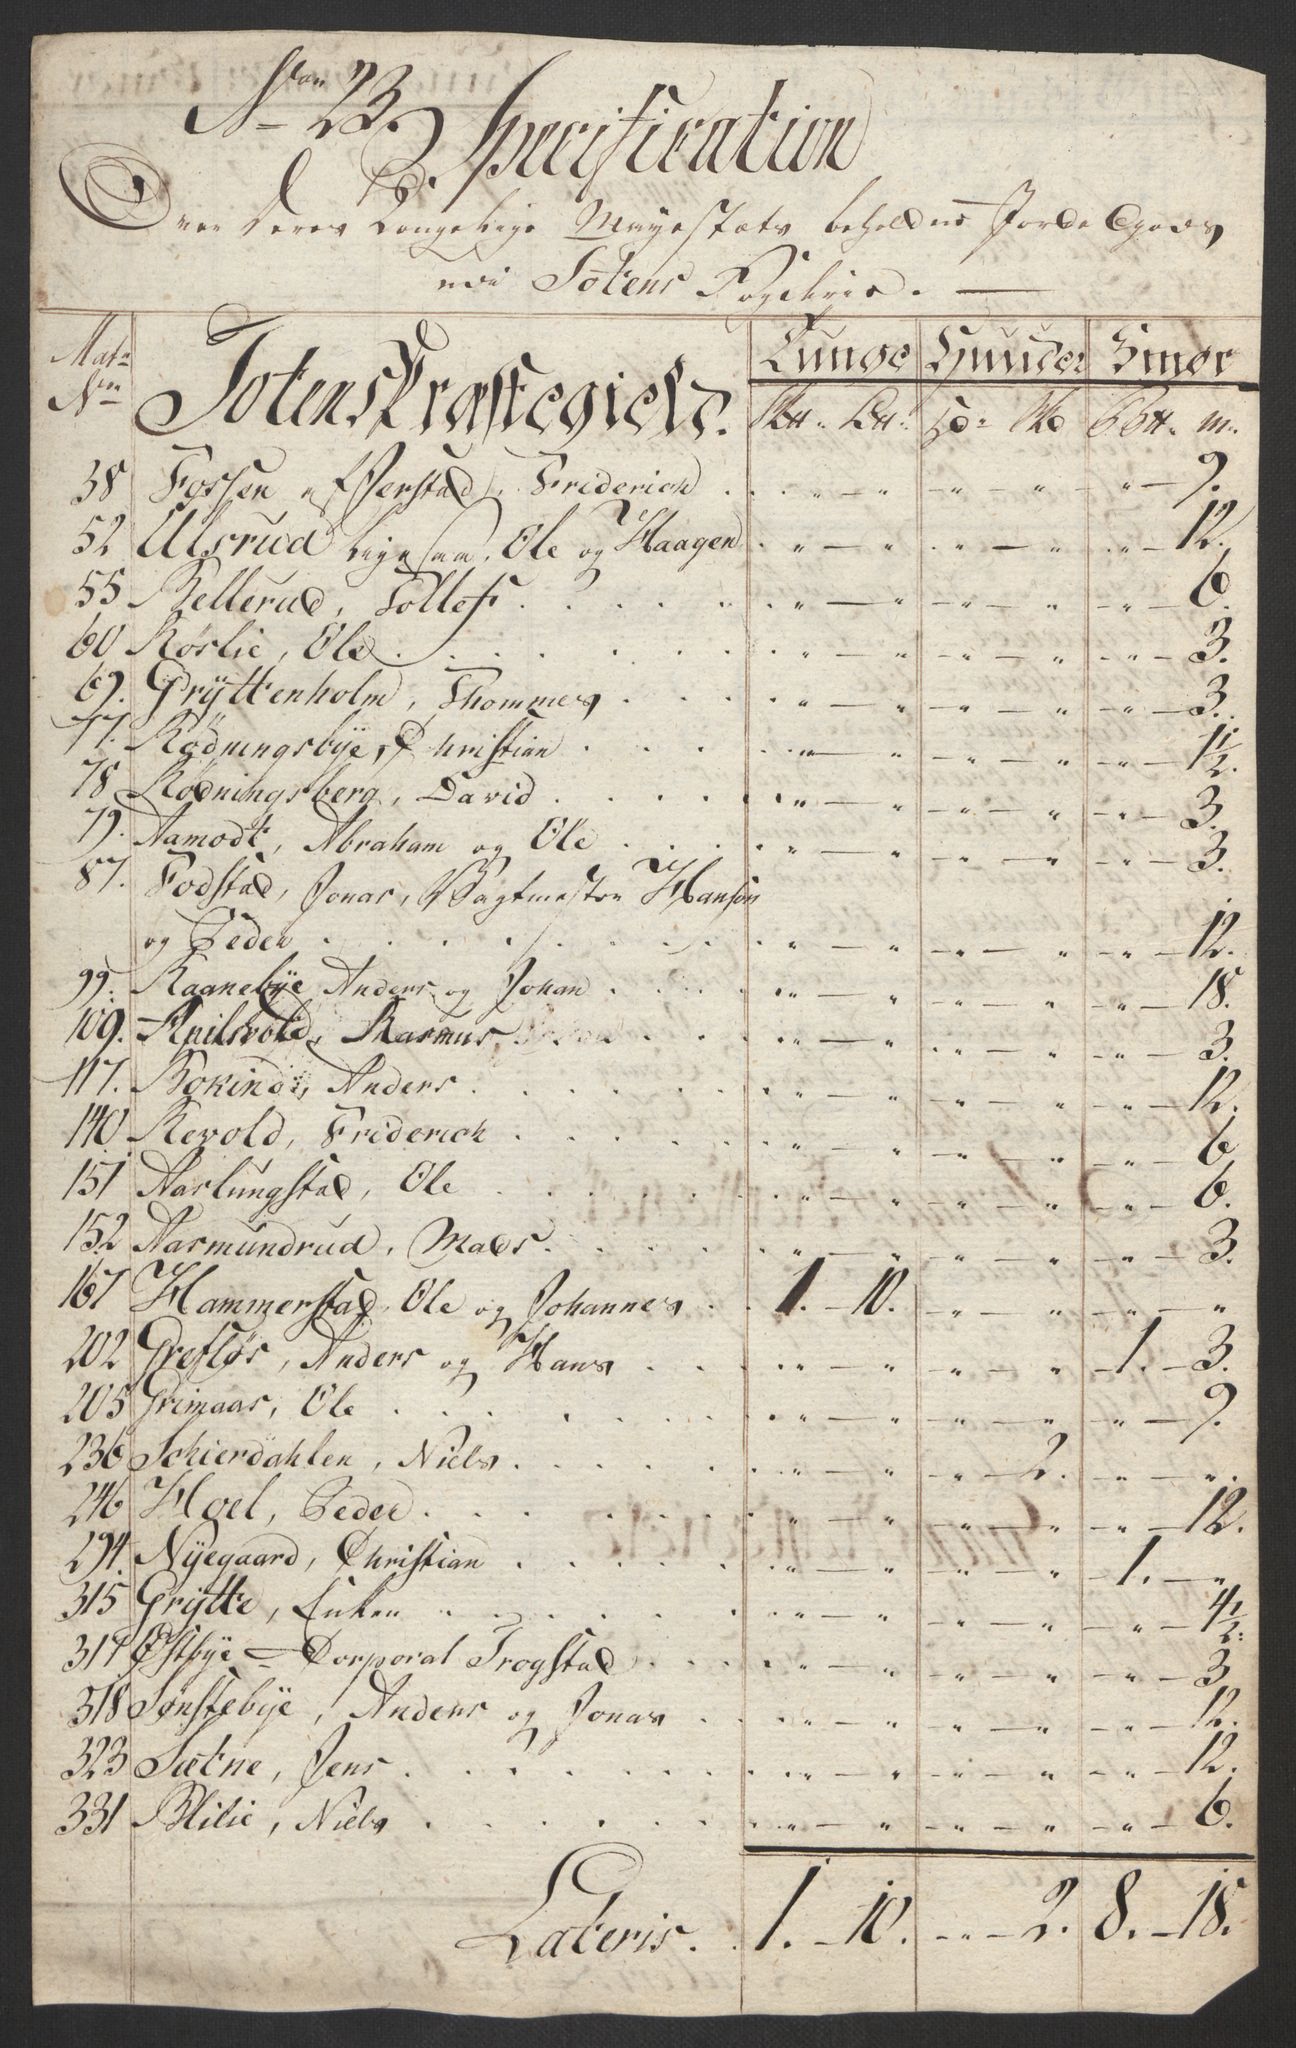 Nron 23. Specification
Over Deres Kongelige Mayestæts beholdne Jorde Godss
udi Totens Fogderie. —
Matr: Nro Totens Præstegield. Tunge Huuder Smør
Skt: Lt: Hd: Skd Bt. m:
38 Fossen Fredrich . . . " — " — " — " — " — 9.
52 Ulsrud ligesaa, Ole og Haagen . " — " . " — " . " — 12.
55 Kellerud, Tollef . . . . " — " — " — " — " — 6.
60 Kørlie, Ole . . . . " — " — " — " — " — 3.
69. Grÿttenholm, Thommes . . . " — " — " — " — " — 3.
77. Rødningsbÿe, Christian . . . " — " — " — " — " — 1½.
78 Rødningsberg, David . . . . " — " — " — " — " — 3.
79. Aamodt, Abraham og Ole . . . " — " — " — " — " — 3.
87. Fodstad, Jonas, Vagtmester Hansen
og Peder . . . . " — " — " — " — " — 12.
99. Kaanebÿe Anders og Johan . . . " — " — " — " — " — 18.
109. Knilsvold, Rasmus . . . " — " — " — " — " — 3.
117. Anders . . . . " — " — " — " — " — 12.
140. Kevold, Friderich . . . . " — " — " — " — " — 6
151 Aarlungstad, Ole . . . . " — " — " — " — " — 6.
152 Aasmundrud, Mads . . . . " — " — " — " — " — 3.
167 Hammerstad, Ole og Johannes . . 1. — 10. — " — " — " — "
202 Grefløs, Anders og Hans . . . " — " — " — " — 1. — 3.
205 Grimaas, Ole . . . . " — " — " — " — " — 9.
236 Schierdahlen, Niels . . . . " — " — " — 2. — " — ".
246 Hoel, Peder . . . . " — " — " — " — " — 12.
294. Nÿegaard, Christian . . . . " — " — " — " — 1. — "
315 Grÿtte, Enken . . . . " — " — " — " — " — 4½.
317 Østbÿe — Corporal Trogstad . . . " — " — " — " — " — 3
318 Sønstebÿe, Anders og Jonas . . . " — " — " — " — " — 12.
323 Sætne, Jens . . . . " — " — " — " — " — 12.
331 Blilie, Niels . . . . " — " — " — " — " — 6.
Lateris . . 1. — 10. — " — 2. 8. — 18.